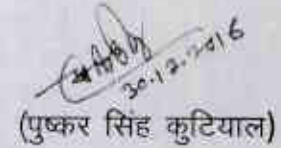 30.12.2016
(पुष्कर सिंह कुटियाल)